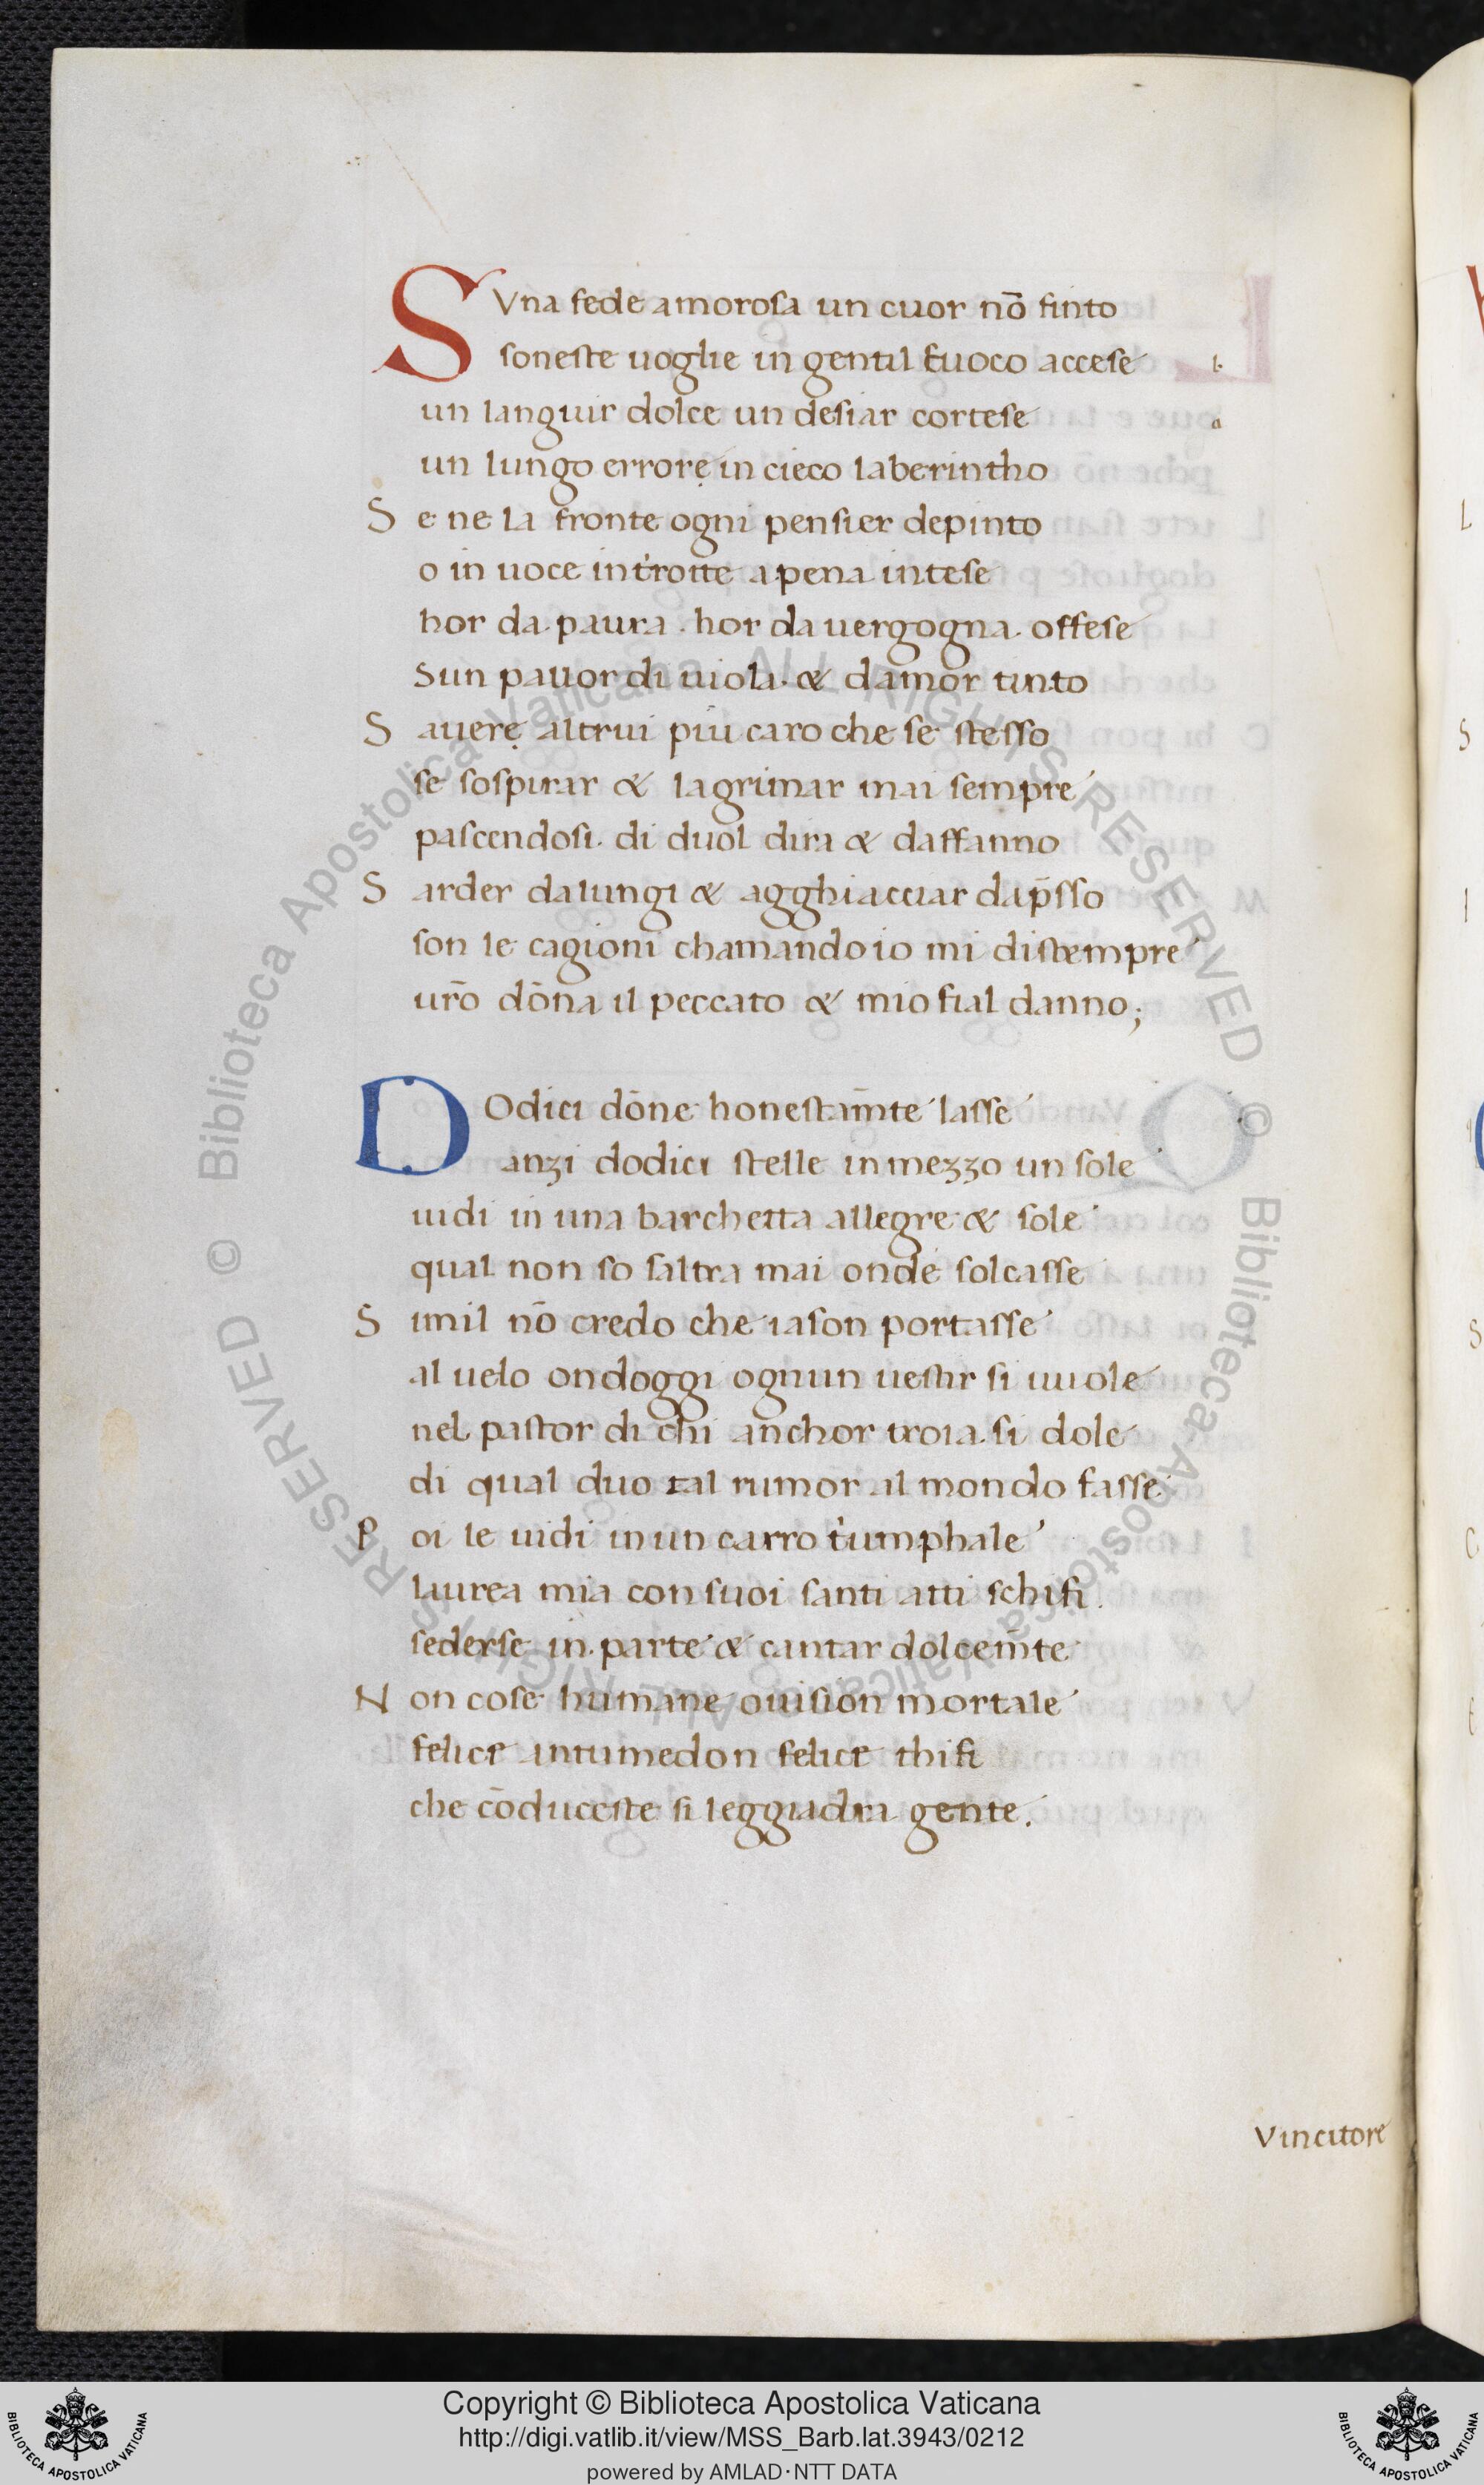 SVna fede amorosa un cuor nō finto
soneste uoglie in gentil fuoco accese
b.
un languir dolce un desiar cortese
a
un lungo errorẹ in cieco laberintho
S e ne la fronte ogni pensier depinto
o in uoce introtte apena intese
hor da paura . hor da uergogna offese
Sun pauor di uiola. & damor tinto
S auerẹ altrui piu caro che se stesso
se sospirar & lagrimar mai sempre
pascendosi di duol dira & daffanno
S arder dalungi & agghiacciar dap̄sso
son le cagioni chamando io mi distempre
ur̄o dōna il peccato & mio fial danno;
DOdici dōne honestam̄te lasse
anzi dodici stelle in mezzo un sole
uidi in una barchetta allegre & sole
qual non so saltra mai onde solcasse
S imil nō credo che iason portasse
al uelo ondoggi ognun uestir si uuole
nel pastor di chi anchor troia si dole
di qual duo tal rumor al mondo fasse
P oi le uidi in un carro triumphale
laurea mia con suoi santi atti schifi
sederse in parte & cantar dolcem̄te
N on cose humane ouision mortale
felice autumedon felice thifi
che cōduceste si leggiadra gente.
Vincitore
Copyright © Biblioteca Apostolica Vaticana
http://digi.vatlib.it/view/MSS_Barb.lat.3943/0212
powered by AMLAD·NTT DATA
BIBLIOTECA APOSTOLICA VATICANA
BIBLIOTECA APOSTOLICA VATICANA
© Biblioteca Apostolica Vaticana ALL RIGHTS RESERVED
© Biblioteca Apostolica Vaticana ALL RIGHTS RESERVED